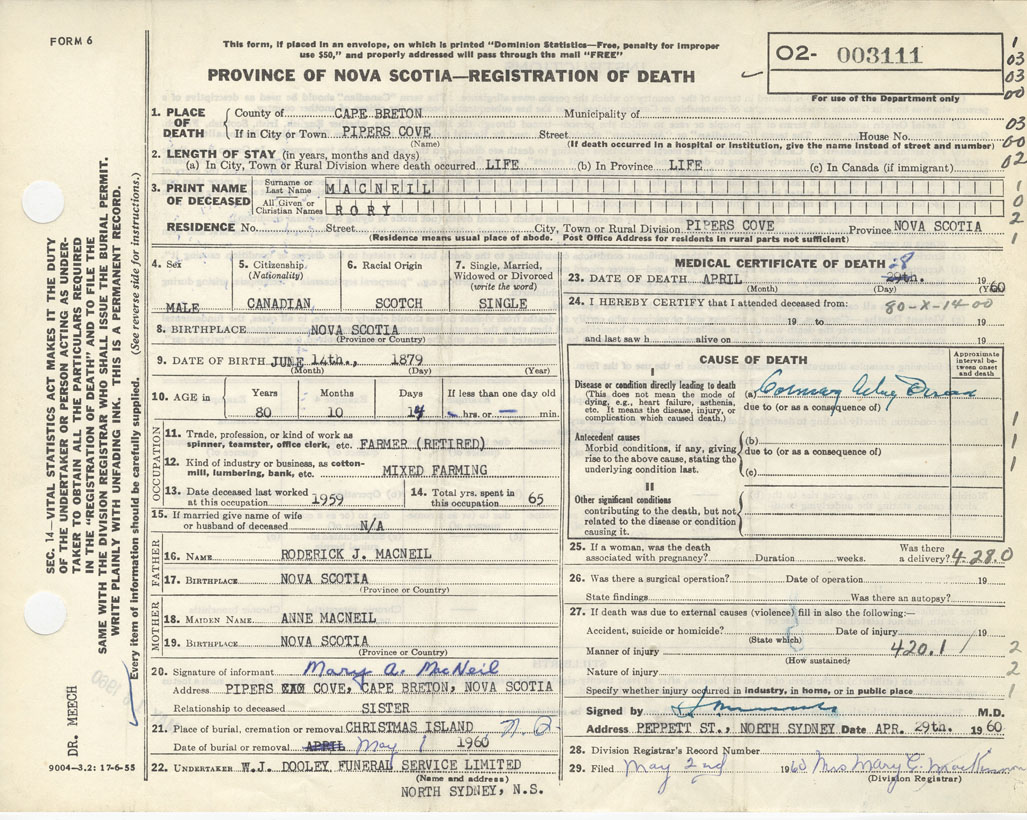 FORM 6
This form, if placed in an envelope, on which is printed "Dominion Statistics—Free, penalty for improper
use $50," and properly addressed will pass through the mail "FREE"
PROVINCE OF NOVA SCOTIA—REGISTRATION OF DEATH
02- 003111
For use of the Department only
1
03
03
00
03
00
02
1
0
2
1
1. PLACE OF DEATH
County of CAPE BRETON Municipality of
If in City or Town PIPERS COVE Street House No.
(Name) (If death occurred in a hospital or institution, give the name instead of street and number)
2. LENGTH OF STAY (in years, months and days)
(a) In City, Town or Rural Division where death occurred LIFE (b) In Province LIFE (c) In Canada (if immigrant)
3. PRINT NAME OF DECEASED
Surname or Last Name MACNEIL
All Given or Christian Names RORY
RESIDENCE No. Street City, Town or Rural Division PIPERS COVE Province NOVA SCOTIA
(Residence means usual place of abode. Post Office Address for residents in rural parts not sufficient)
4. Sex
MALE
5. Citizenship
(Nationality)
CANADIAN
6. Racial Origin
SCOTCH
7. Single, Married,
Widowed or Divorced
(write the word)
SINGLE
8. BIRTHPLACE NOVA SCOTIA
(Province or Country)
9. DATE OF BIRTH JUNE 14th., 1879
(Month) (Day) (Year)
10. AGE in
Years Months Days If less than one day old
80 10 14 — hrs. or — min.
OCCUPATION
11. Trade, profession, or kind of work as
spinner, teamster, office clerk, etc. FARMER (RETIRED)
12. Kind of industry or business, as cotton-
mill, lumbering, bank, etc. MIXED FARMING
13. Date deceased last worked
at this occupation 1959
14. Total yrs. spent in
this occupation 65
15. If married give name of wife
or husband of deceased N/A
FATHER
16. NAME RODERICK J. MACNEIL
17. BIRTHPLACE NOVA SCOTIA
(Province or Country)
MOTHER
18. MAIDEN NAME ANNE MACNEIL
19. BIRTHPLACE NOVA SCOTIA
(Province or Country)
20. Signature of informant Mary A. MacNeil
Address PIPERS COVE, CAPE BRETON, NOVA SCOTIA
Relationship to deceased SISTER
21. Place of burial, cremation or removal CHRISTMAS ISLAND
Date of burial or removal APRIL May 1 1960
22. UNDERTAKER W.J. DOOLEY FUNERAL SERVICE LIMITED
(Name and address)
NORTH SYDNEY, N.S.
MEDICAL CERTIFICATE OF DEATH
28
23. DATE OF DEATH APRIL 29th. 1960
(Month) (Day) (Year)
24. I HEREBY CERTIFY that I attended deceased from: 80-X-14 00
19 to 19
and last saw h alive on 19
CAUSE OF DEATH
Approximate
interval be-
tween onset
and death
I
Disease or condition directly leading to death
(This does not mean the mode of
dying, e.g., heart failure, asthenia,
etc. It means the disease, injury, or
complication which caused death.)
(a)
due to (or as a consequence of)
Antecedent causes
Morbid conditions, if any, giving
rise to the above cause, stating the
underlying condition last.
(b)
due to (or as a consequence of)
(c)
1
1
1
II
Other significant conditions
contributing to the death, but not
related to the disease or condition
causing it.
25. If a woman, was the death
associated with pregnancy? Duration weeks. Was there
a delivery? 4.28.0
26. Was there a surgical operation? Date of operation 19
State findings Was there an autopsy?
27. If death was due to external causes (violence) fill in also the following:—
Accident, suicide or homicide? Date of injury 19
(State which)
Manner of injury 420.1
(How sustained)
Nature of injury
Specify whether injury occurred in industry, in home, or in public place
2
2
1
Signed by M.D.
Address PEPPETT ST., NORTH SYDNEY Date APR. 29th. 1960
28. Division Registrar's Record Number
29. Filed May 2nd 1960 Mrs Mary C.
(Division Registrar)
SEC. 14—VITAL STATISTICS ACT MAKES IT THE DUTY
OF THE UNDERTAKER OR PERSON ACTING AS UNDER-
TAKER TO OBTAIN ALL THE PARTICULARS REQUIRED
IN THE "REGISTRATION OF DEATH" AND TO FILE THE
SAME WITH THE DIVISION REGISTRAR WHO SHALL ISSUE THE BURIAL PERMIT.
WRITE PLAINLY WITH UNFADING INK. THIS IS A PERMANENT RECORD.
Every item of information should be carefully supplied. (See reverse side for instructions.)
DR. MEECH
9004—3.2: 17-6-55